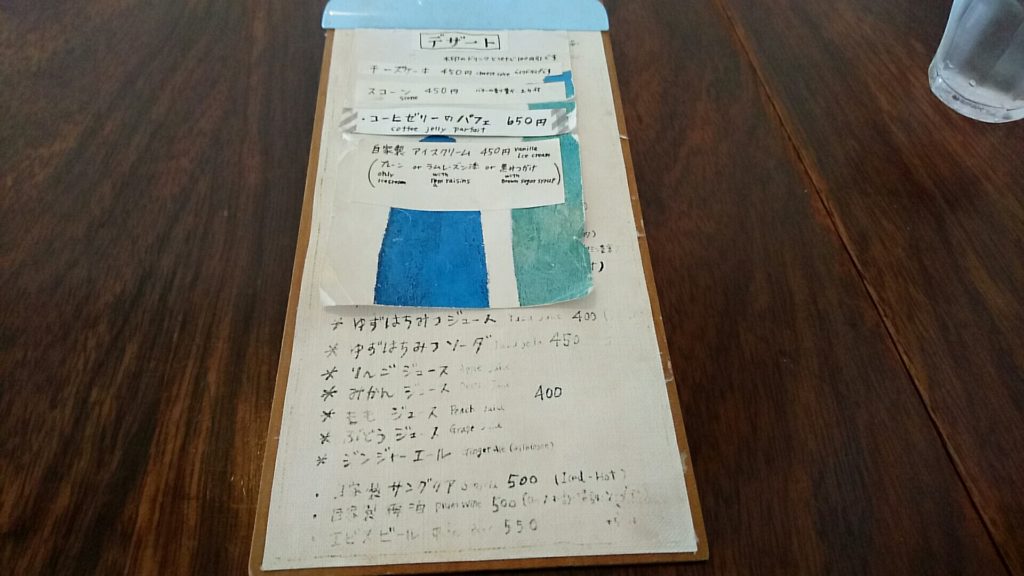 デザート
木印のドリンクとセットで100円引です
チーズケーキ 450円 cheese cake
スコーン 450円
scone
・コーヒゼリーのパフェ 650円
coffee jelly parfait
自家製 アイスクリーム 450円 vanilla ice cream
(プレーン or ラムレズン添 or 黒みつがけ
only icecream with rum raisins with brown sugar syrup)
* ゆずはちみつジュース 400
* ゆずはちみつソーダ 450
* りんごジュース Apple Juice
* みかんジュース 400
* ももジュース Peach Juice
* ぶどうジュース Grape Juice
* ジンジャーエール Ginger Ale
・自家製サングリア 500 (Iced-Hot)
・自家製梅酒 Plum Wine 500
・エビスビール 550